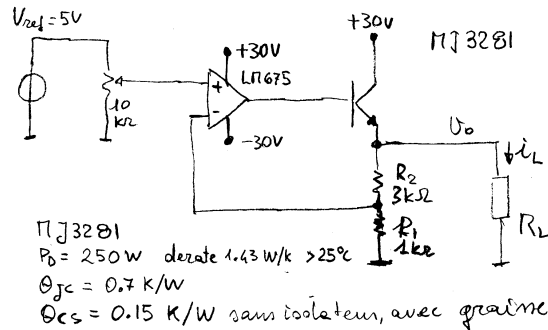 Vref = 5V
+30V
MJ3281
+30V
LM675
+
-
10
kΩ
-30V
Vo
iL
R2
3kΩ
RL
R1
1kΩ
MJ3281
PD = 250W derate 1.43 W/K >25°C
θJC = 0.7 K/W
θCS = 0.15 K/W sans isolateur, avec graisse